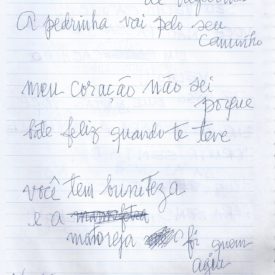 A pedrinha vai pelo seu
Caminho
meu coração não sei
porque
bate feliz quando te teve
você tem buniteza
e a
matureja foi quem